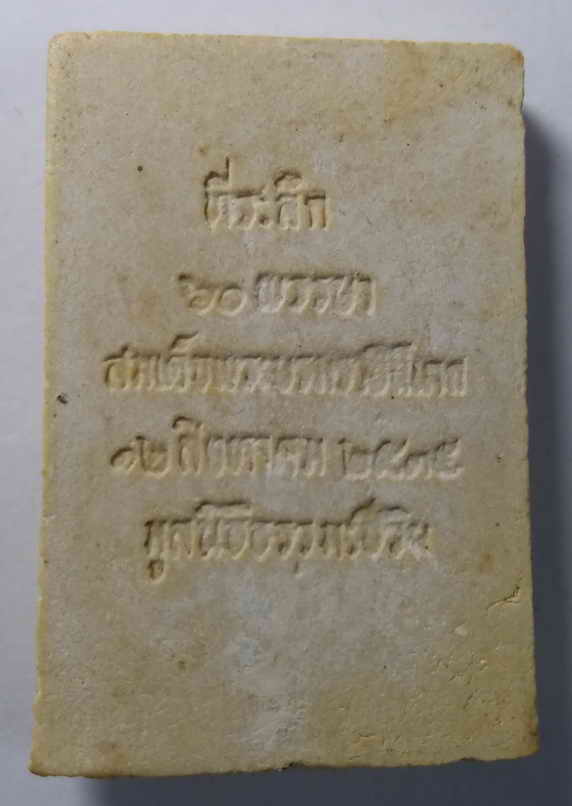 ที่ระลึก
๖๐ พรรษา
สมเด็จพระบรมราชินีนาถ
๑๒ สิงหาคม ๒๕๓๕
มูลนิธิ